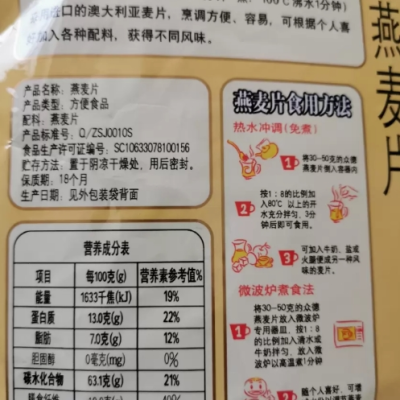 用进口的澳大利亚麦片，烹调方便、容易，可根据个人喜
好加入各种配料，获得不同风味。
燕麦片
产品名称：燕麦片
产品类型：方便食品
配料：燕麦片
产品标准号：Q/ZSJ0010S
食品生产许可证编号：SC10633078100156
贮存方法：置于阴凉干燥处，用后密封。
保质期：18个月
生产日期：见外包装袋背面
营养成分表
项目 每100克(g) 营养素参考值%
能量 1633千焦(kJ) 19%
蛋白质 13.0克(g) 22%
脂肪 7.0克(g) 12%
胆固醇 0毫克(mg) 0%
碳水化合物 63.1克(g) 21%
燕麦片食用方法
热水冲调(免煮)
1 将30-50克的众德
燕麦片倒入容器内
2 按1：8的比例加
入80℃ 以上的开
水充分拌匀、3分
钟后即可食用。
3 可加入牛奶、盐或
火腿便成另一种风
味的麦片。
微波炉煮食法
1 将30-50克的众德
燕麦片放入微波炉
专用器皿、按1：8
的比例加入清水或
牛奶拌匀、放入微
波炉以高温煮1分钟
2 随个人喜好、可